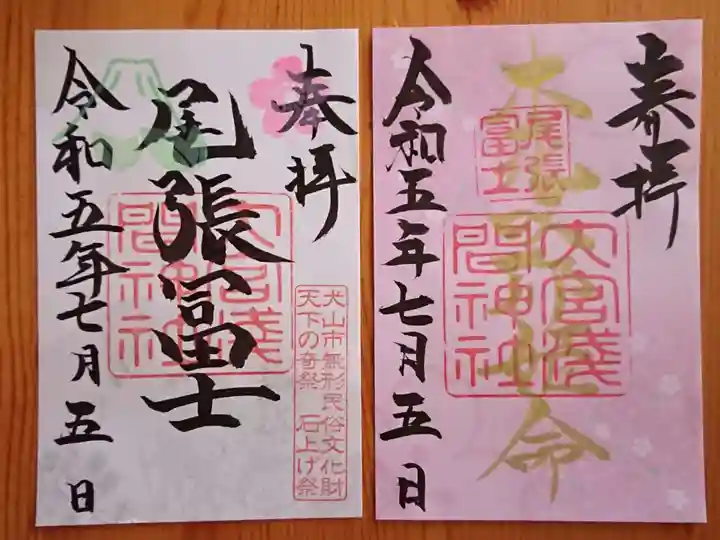 奉拝
尾張冨士
令和五年七月五日
大宮浅
間神社
犬山市無形民俗文化財
天下の奇祭 石上げ祭
奉拝
尾張
富士
大宮浅
間神社
令和五年七月五日